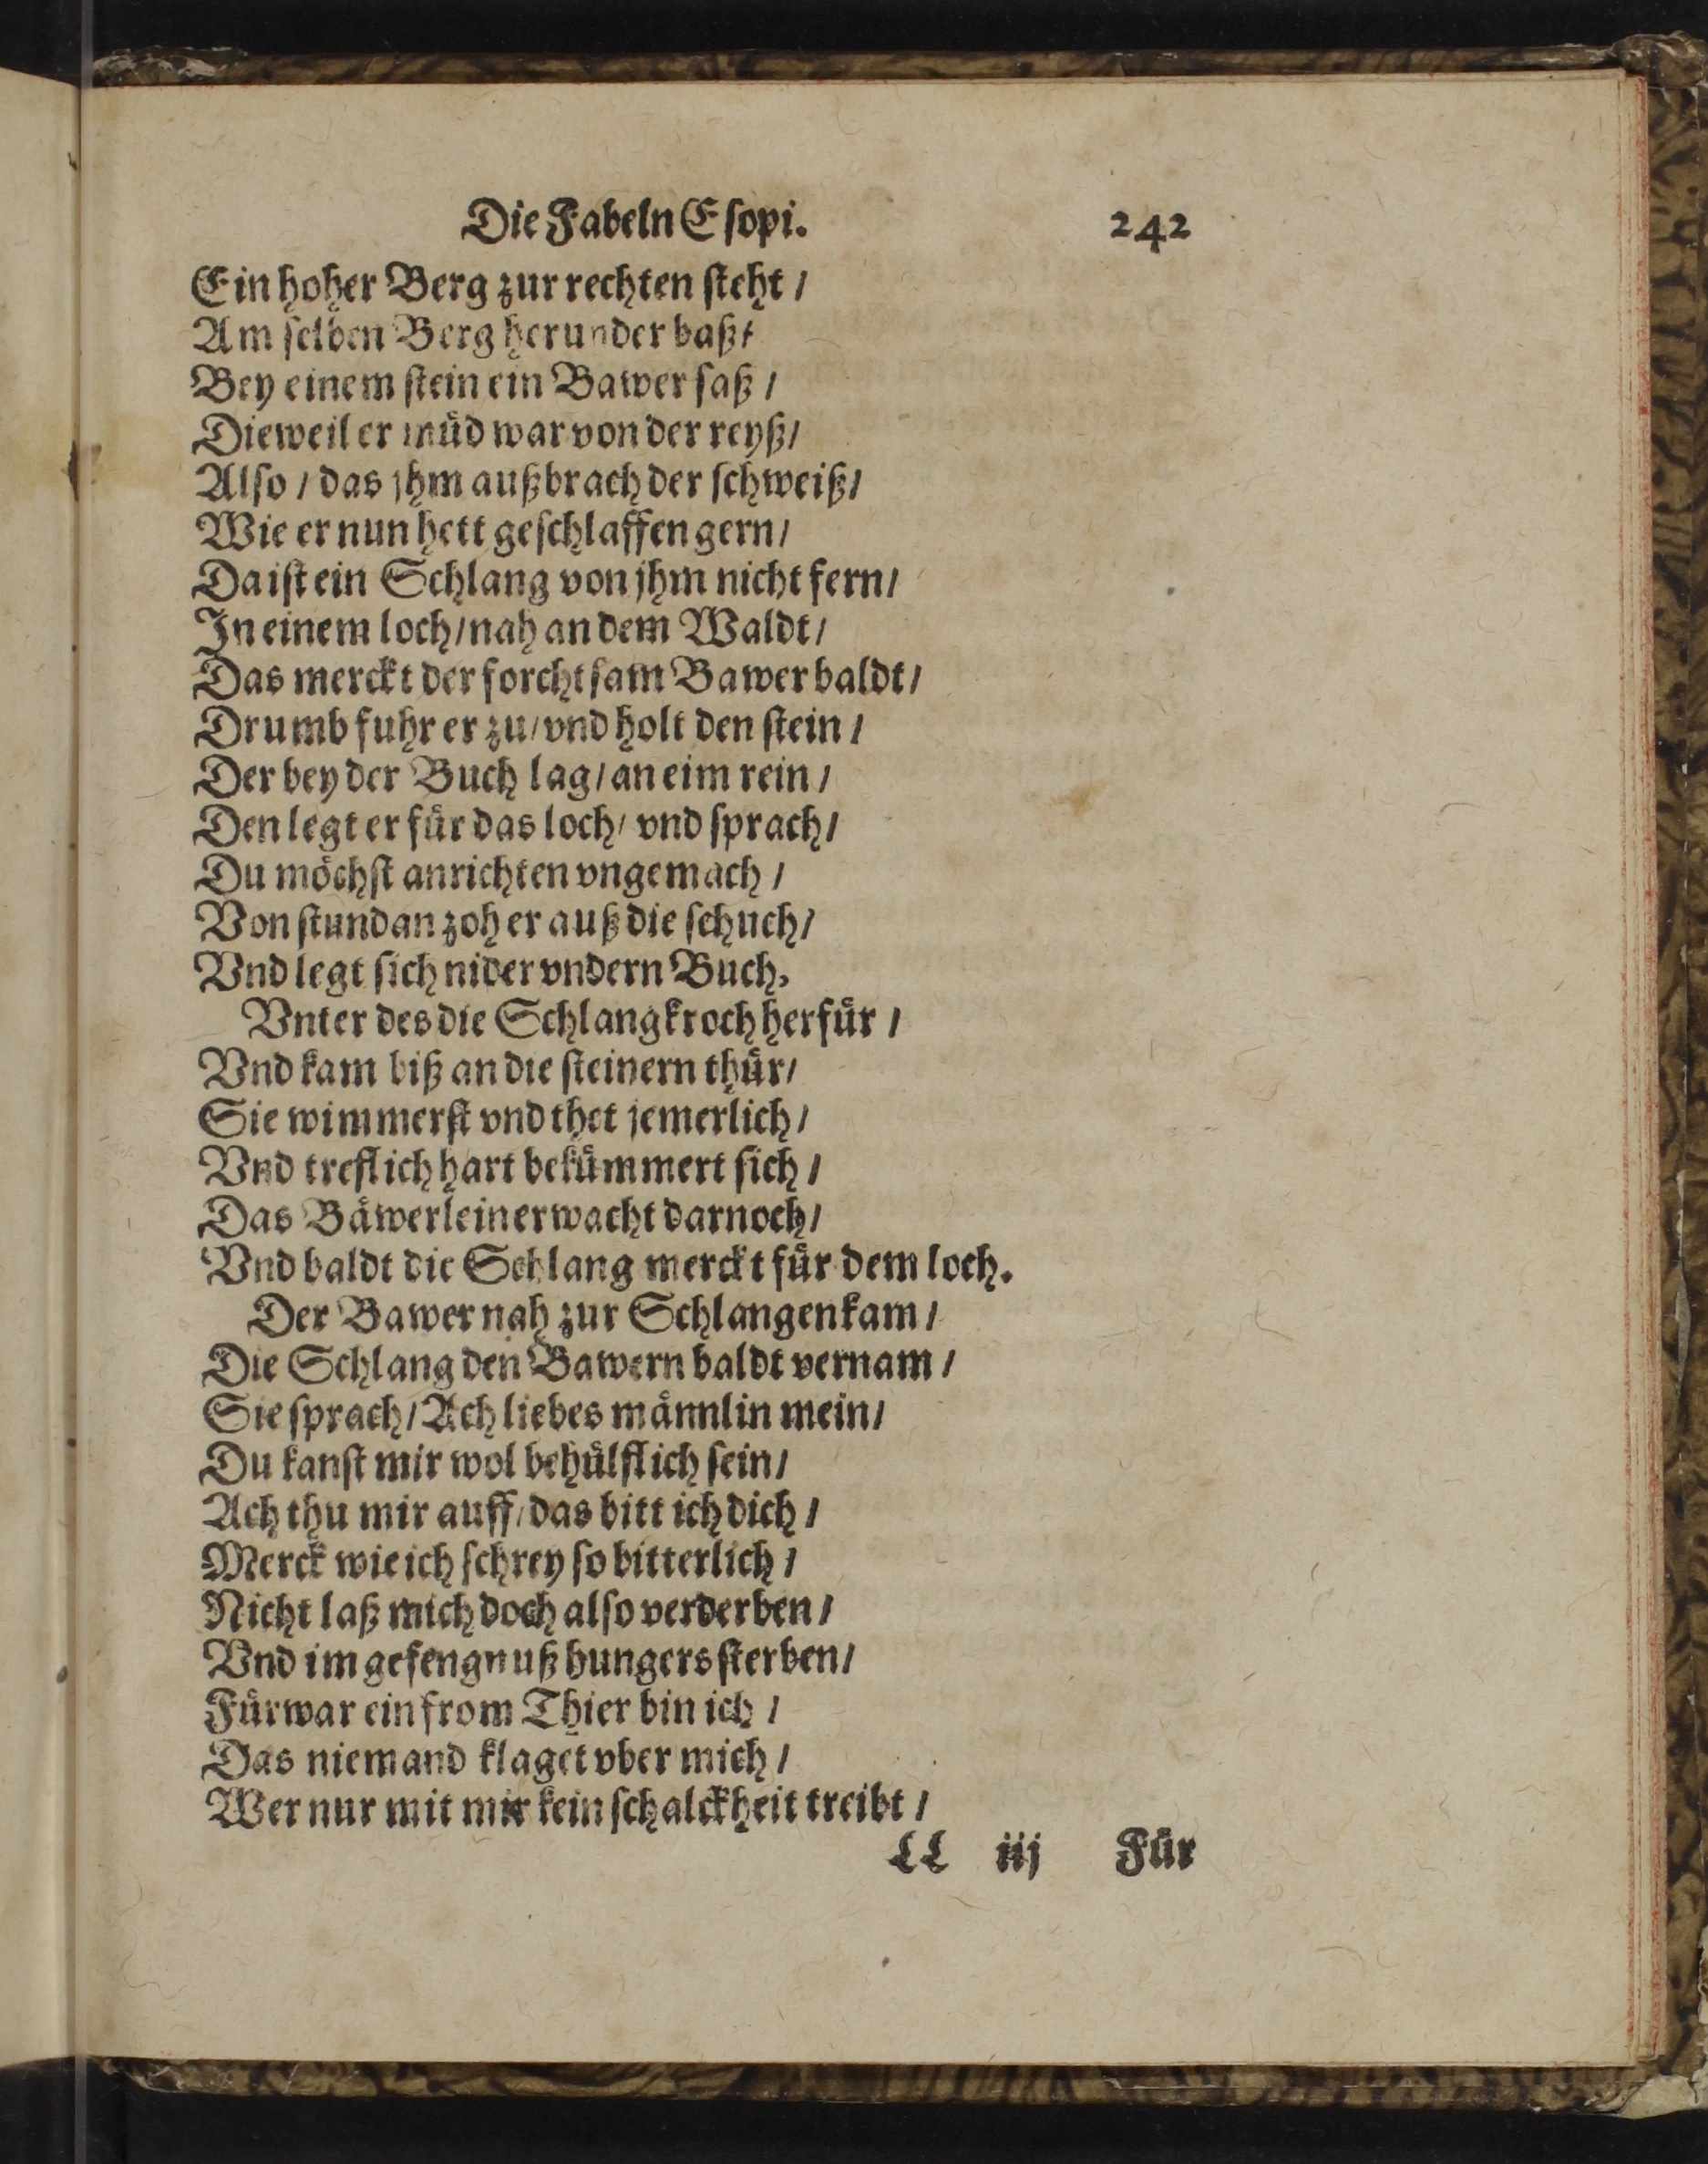 Die Fabeln Esopi. 242
Ein hoher Berg zur rechten steht /
Am selben Berg herunder baß /
Bey einem stein ein Bawer saß /
Dieweil er müd war von der reyß /
Also / das jhm außbrach der schweiß /
Wie er nun hett geschlaffen gern /
Da ist ein Schlang von jhm nicht fern /
In einem loch / nah an dem Waldt /
Das merckt der forchtsam Bawer baldt /
Drumb fuhr er zu / vnd holt den stein /
Der bey der Buch lag / an eim rein /
Den legt er für das loch / vnd sprach /
Du möchst anrichten vngemach /
Von stundan zoh er auß die schuch /
Vnd legt sich nider vndern Buch,
Vnter des die Schlang kroch herfür /
Vnd kam biß an die steinern thür /
Sie wimmerst vnd thet jemerlich /
Vnd treflich hart bekümmert sich /
Das Bäwerlein erwacht darnoch /
Vnd baldt die Schlang merckt für dem loch.
Der Bawer nah zur Schlangen kam /
Die Schlang den Bawern baldt vernam /
Sie sprach / Ach liebes männlin mein /
Du kanst mir wol behülflich sein /
Ach thu mir auff / das bitt ich dich /
Merck wie ich schrey so bitterlich /
Nicht laß mich doch also verderben /
Vnd im gefengnuß hungers sterben /
Fürwar ein from Thier bin ich /
Das niemand klaget vber mich /
Wer nur mit mir kein schalckheit treibt /
LL iij Für